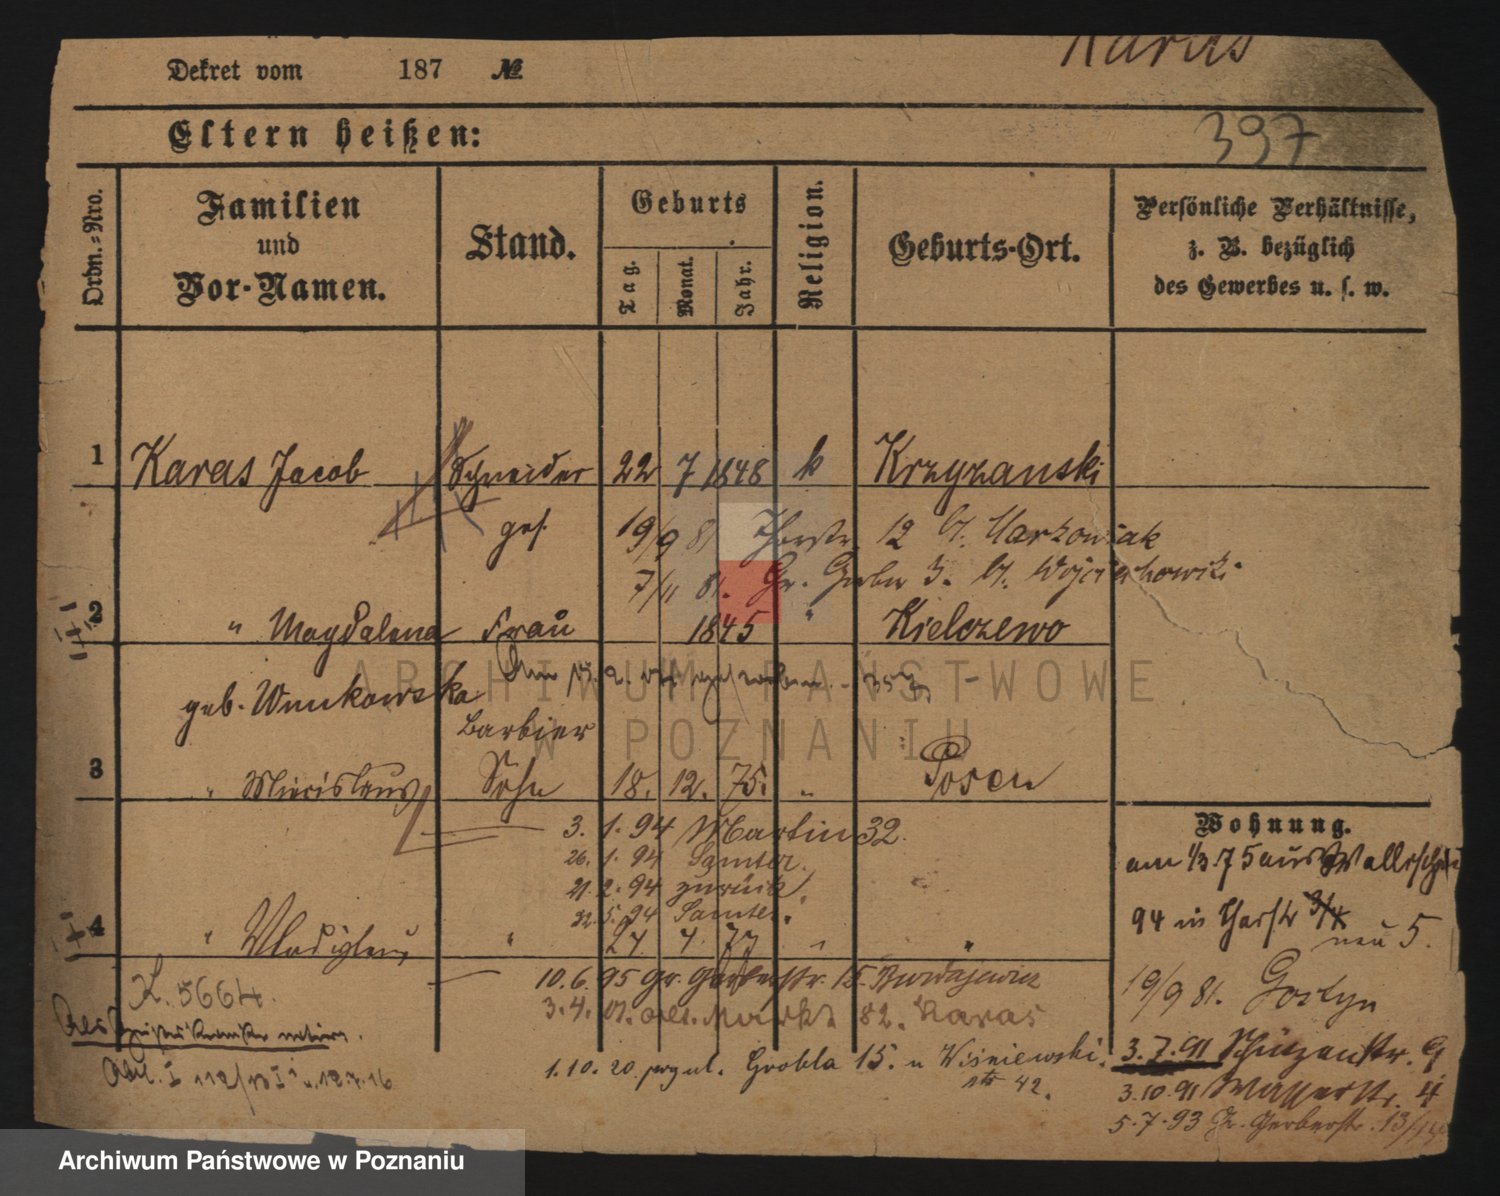 Dekret vom 187 №
Karas
397
Eltern heißen:
Ordn.=Nro.
Familien
und
Vor-Namen.
Stand.
Geburts
Tag.
Monat.
Jahr.
Religion.
Geburts-Ort.
Persönliche Verhältnisse,
z. B. bezüglich
des Gewerbes u. s. w.
1 Karas Jacob Schneider 22 7 1848 k Krzyzanski
ges. 19/9 81 12 b/. Markowiak
7/11 81. Gr. Gerber 3. b/. Wojciechowski
2 " Magdalena Frau 1845 " Kielczewo
geb.
Barbier
3 " Sohn 18. 12. 75. " Posen
3. 1. 94 Martin 32.
26. 1. 94 Samter.
21. 2. 94 zurück.
22. 5. 94 Samter.
4 " " 27. " "
Wohnung.
am 1/3 75 aus Wallischei
94 in
neu 5.
K. 5664.
10.6.95 Gr. Gerberstr. 15.
82. Karas
19/9 81. Gostyn
3.7.91 Schützenstr. 9
3.10.91 Wasserstr. 4
5.7.93 Gr. Gerberstr. 13/14
1.10.20. Grobla 15. u Wiśniewski.
42.
ARCHIWUM PAŃSTWOWE
W POZNANIU
Archiwum Państwowe w Poznaniu